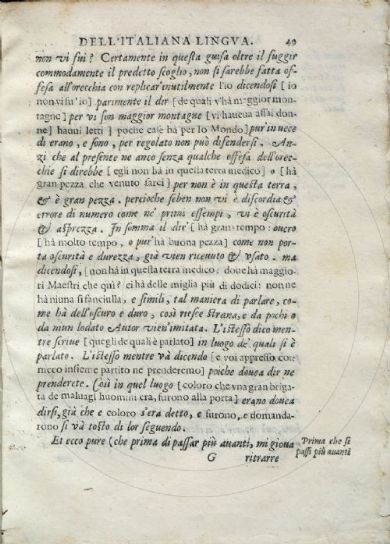 DELL'ITALIANA LINGVA. 49
non vi fui? Certamente in questa guisa oltre il fuggir
commodamente il predetto scoglio, non si sarebbe fatta of-
fesa all'orecchia con replicar'inutilmente l'io dicendosi [io
non vi fu'io]. parimente il dir [de quali v'hà maggior mon-
tagne] per vi son maggior montagne [vi haueua assai don-
ne] hauui letti] poche case hà per lo Mondo] pur in vece
di erano, e sono, per regolato non può difendersi. An-
zi che al presente ne anco senza qualche offesa dell'orec-
chie si direbbe [egli non hà in questa terra medico] o [hà
gran pezza che venuto sarei] per non è in questa terra,
& è gran pezza. percioche seben non vi è discordia &
errore di numero come ne' primi essempi, vi è oscurità
& asprezza. In somma il dir' [hà gran tempo: ouero
[hà molto tempo, o pur'hà buona pezza] come non por-
ta oscurità e durezza, già vien riceuuto & vsato. ma
dicendosi, [non hà in questa terra medico: doue hà maggio-
ri Maestri che quì? ci hà delle miglia più di dodici: non ne
hà niuna si fanciulla, e simili, tal maniera di parlare, co-
me hà dell'oscuro e duro, così riesce strana, e da pochi o
da niun lodato Autor vien'imitata. L'istesso dico men-
tre scriue [quegli de quali è parlato] in luogo de' quali si è
parlato. L'istesso mentre và dicendo [e voi appresso con
meco insieme partito ne prenderemo] poiche douea dir ne
prenderete. Così in quel luogo [coloro che vna gran briga-
ta de maluagi huomini era, furono alla porta] erano douea
dirsi, già che e coloro s'era detto, e furono, e domanda-
rono si và tosto di lor seguendo.
Et ecco pure (che prima di passar più auanti, mi gioua
Prima che si
passi più auanti
G ritrarre